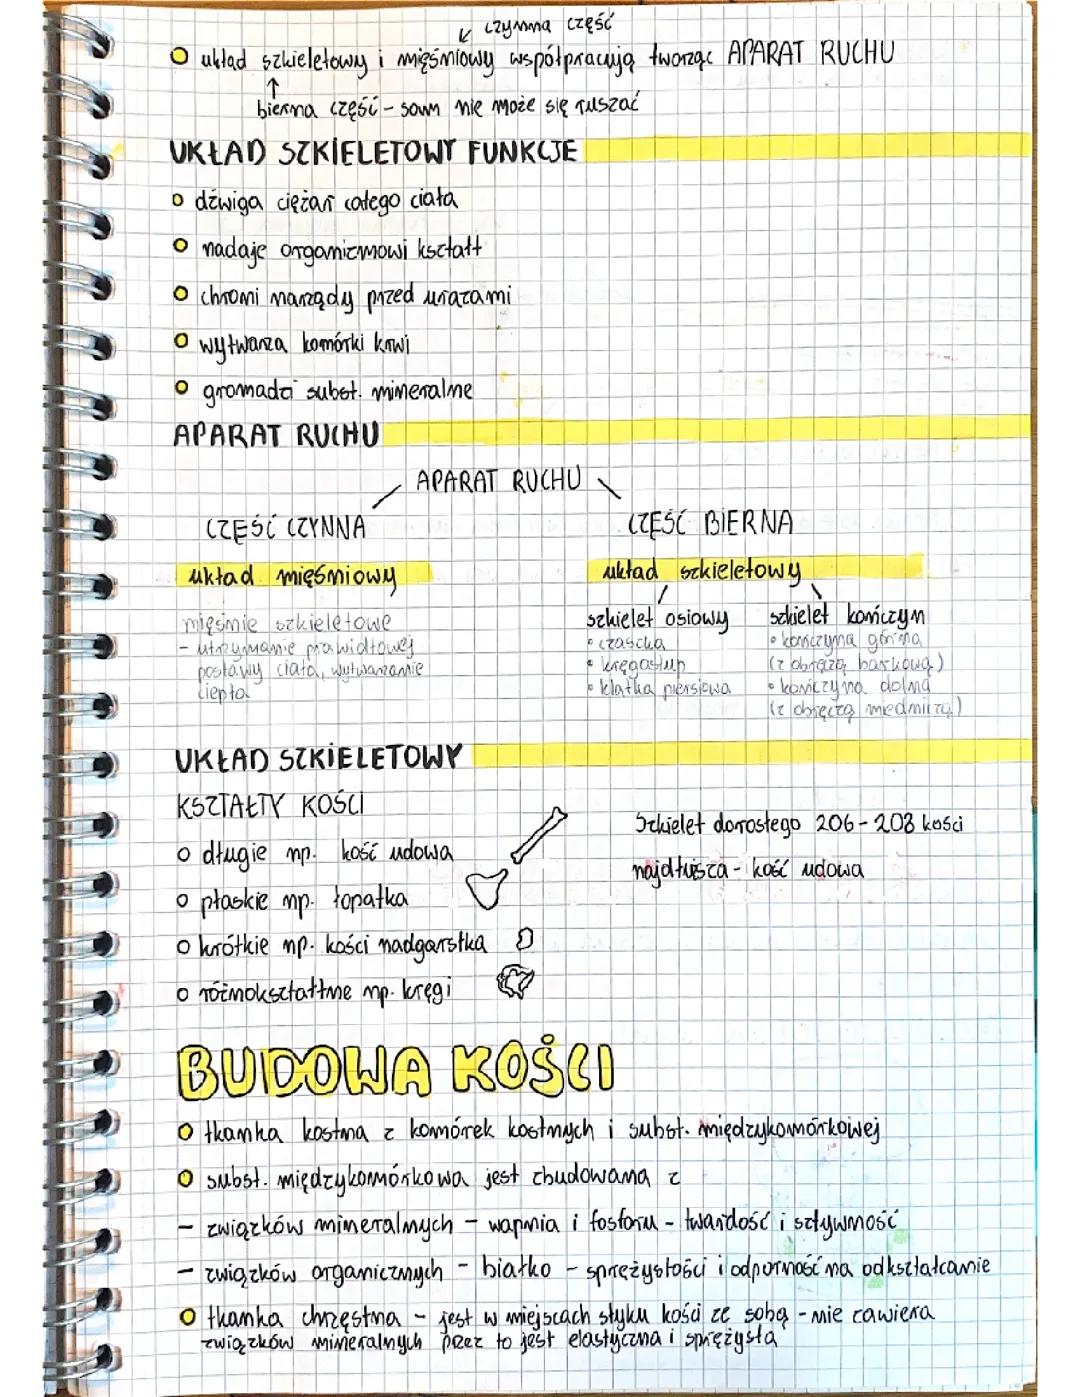 czynna część
układ szkieletowy i mięśniowy współpracują tworząc APARAT RUCHU
bierna część - sam nie może się ruszać
UKŁAD SZKIELETOWY FUNKCJE
dźwiga ciężar całego ciała
nadaje organizmowi kształt
chroni narządy przed urazami
wytwarza komórki krwi
gromadzi subst. mineralne
APARAT RUCHU
APARAT RUCHU
CZĘŚĆ CZYNNA CZĘŚĆ BIERNA
układ mięśniowy układ szkieletowy
mięśnie szkieletowe szkielet osiowy szkielet kończyn
- utrzymanie prawidłowej • czaszka • kończyna górna
postawy ciała, wytwarzanie • kręgosłup (z obręczą barkową)
ciepła • klatka piersiowa • kończyna dolna
(z obręczą miedniczą)
UKŁAD SZKIELETOWY
KSZTAŁTY KOŚCI
Szkielet dorosłego 206-208 kości
długie np. kość udowa
najdłuższa - kość udowa
płaskie np. łopatka
krótkie np. kości nadgarstka
różnokształtne np. kręgi
BUDOWA KOŚCI
tkanka kostna z komórek kostnych i subst. międzykomórkowej
subst. międzykomórkowa jest zbudowana z
- związków mineralnych - wapnia i fosforu - twardość i sztywność
- związków organicznych - białko - sprężystości i odporność na odkształcanie
tkanka chrzęstna - jest w miejscach styku kości ze sobą - nie zawiera
związków mineralnych przez to jest elastyczna i sprężysta